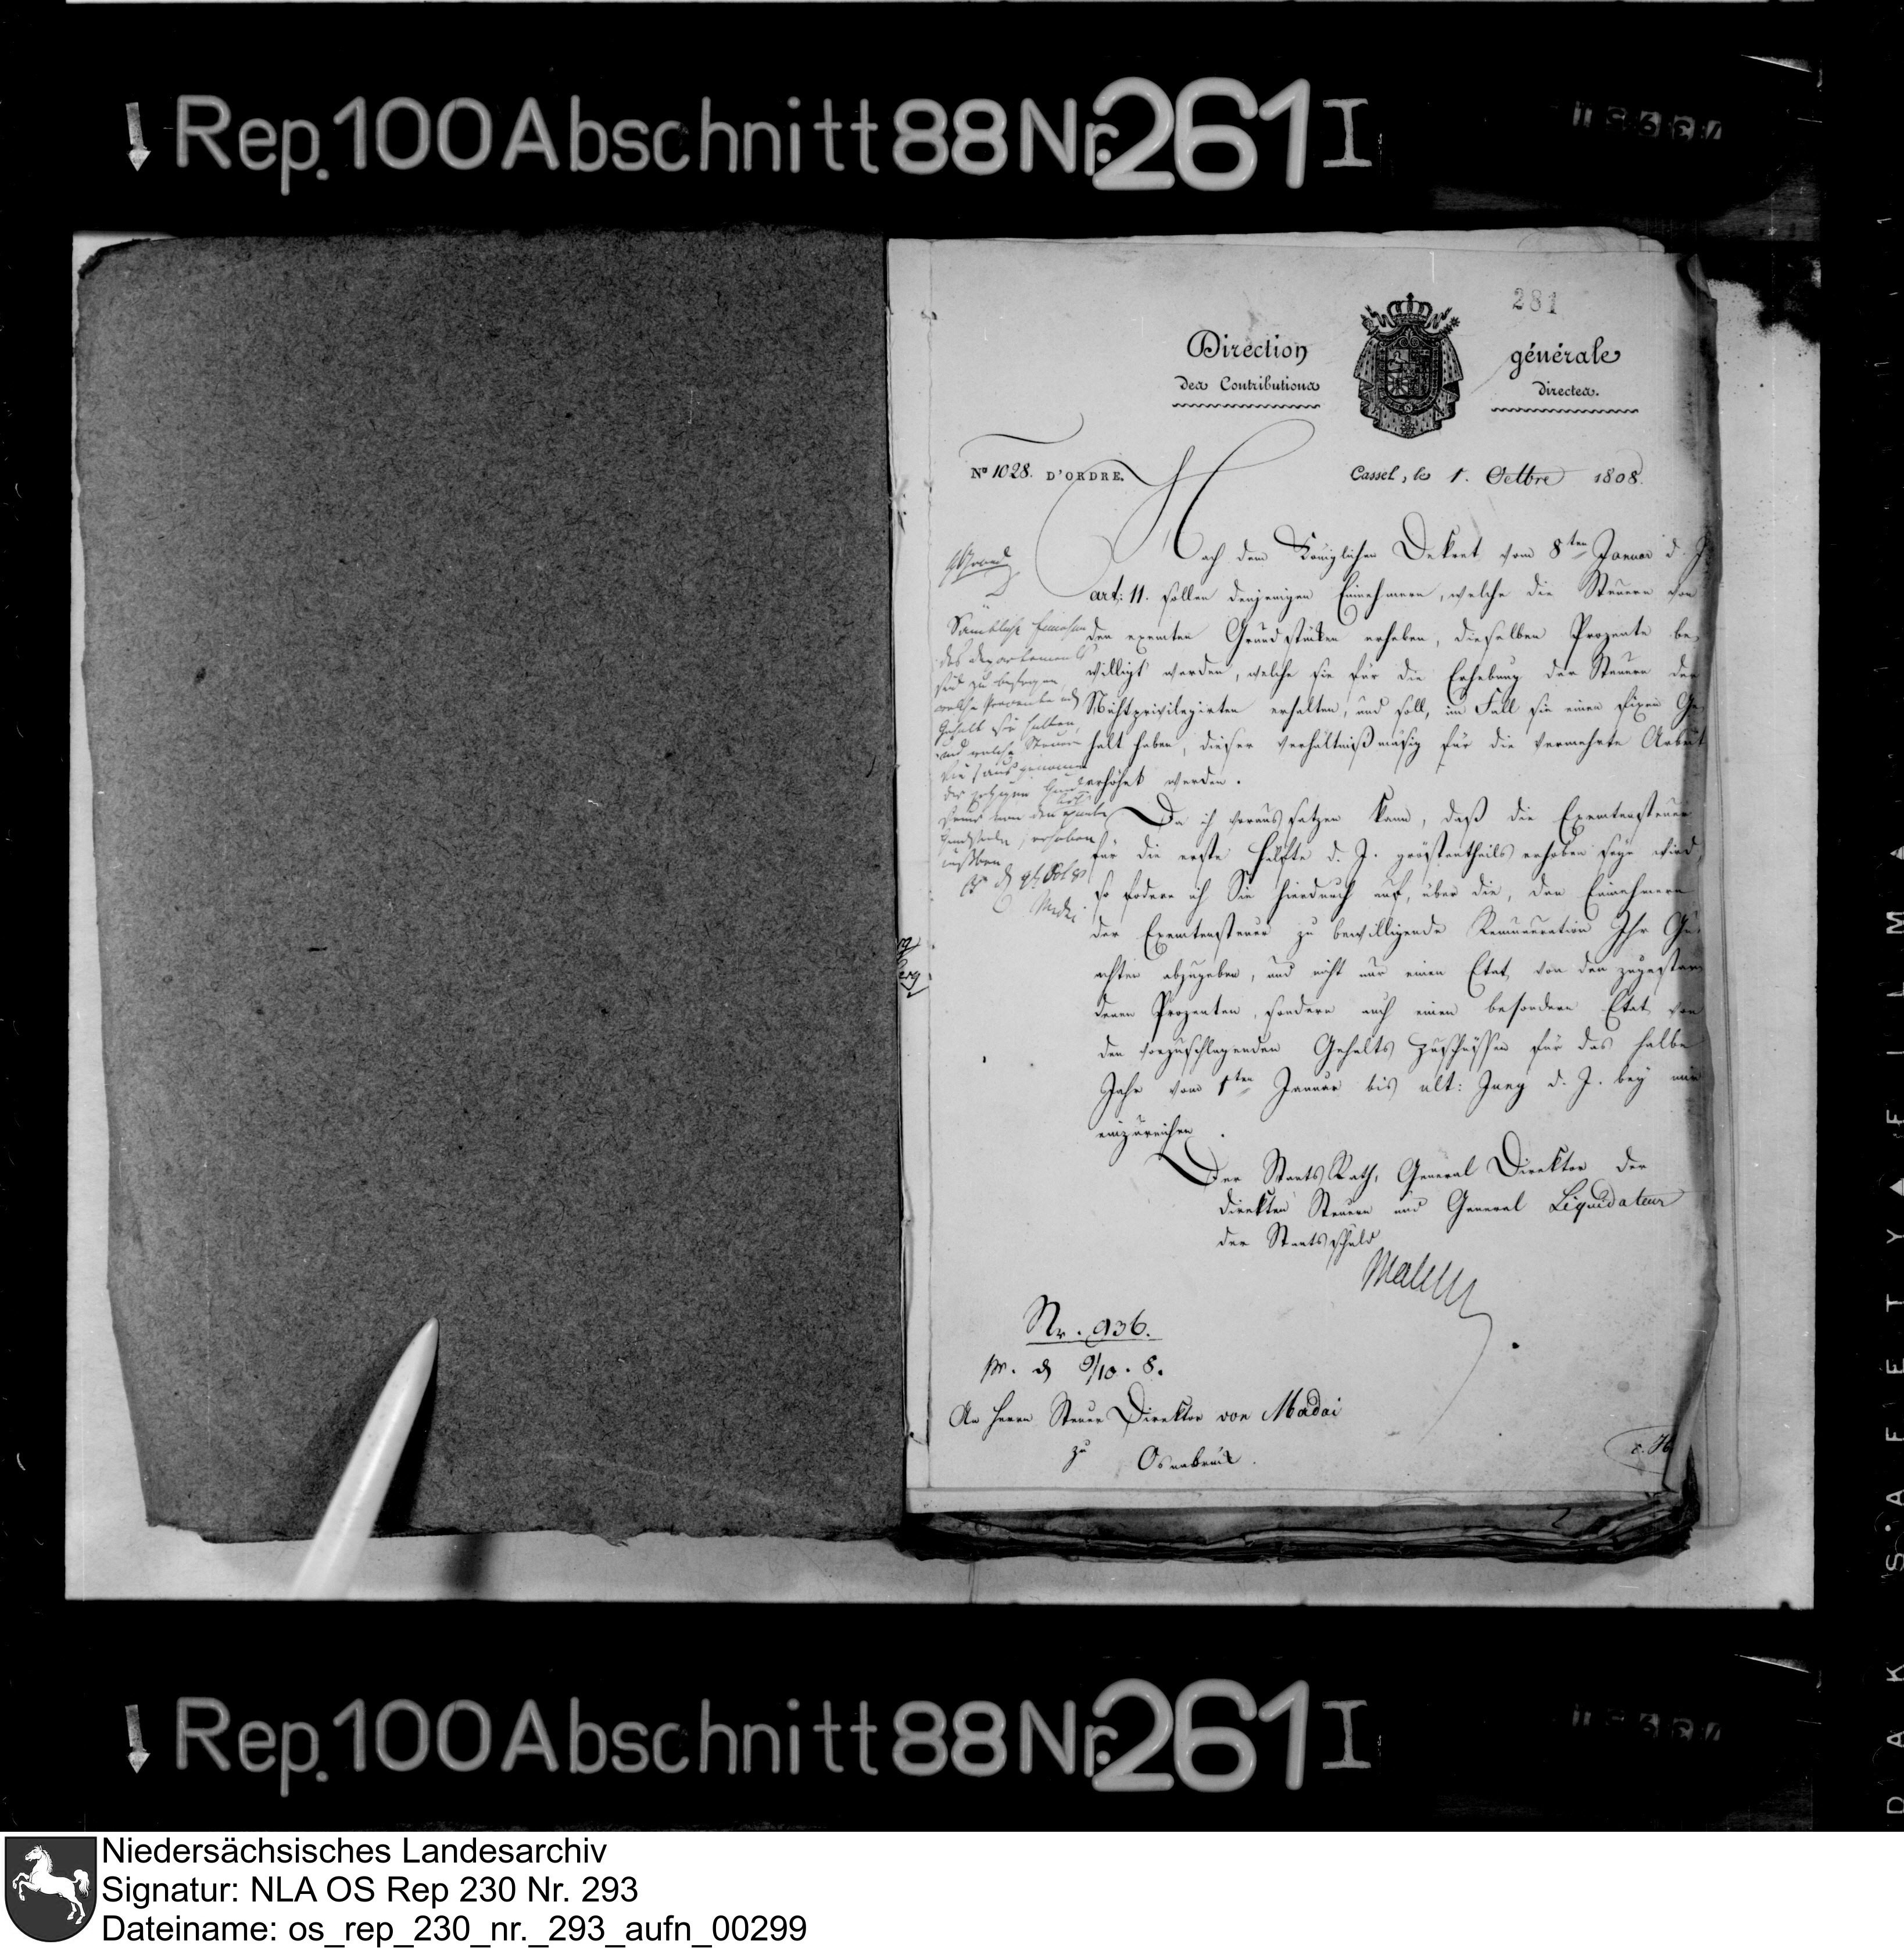 Rep. 100 Abschnitt 88 Nr. 261 I
281
Direction générale
des Contributions directes.
No 1028. D'ORDRE.
Cassel, le 1. Octbre 1808.
Nach dem Königlichen Dekret vom 8ten Januar d. J.
art: 11. sollen denjenigen Einnehmern, welche die Steuern von
den exemten Grundstücken erheben, dieselben Prozente be
willigt werden, welche sie für die Erhebung der Steuern der
Nichtprivilegirten erhalten, und soll, im Fall sie einen fixen Ge
halt haben, dieser verhältnißmäsig für die vermehrte Arbeit
erhöhet werden.
Da ich voraus setzen kann, daß die Exemtensteuer
für die erste Hälfte d. J. gröstentheils erhoben seyn wird,
so fodere ich Sie hierdurch auf, über die, den Einnehmern
der Exemtensteuer zu bewilligende Remuneration Ihr Gut
achten abzugeben, und nicht nur einen Etat, von den zugestan
denen Prozenten, sondern auch einen besondern Etat von
den vorzuschlagenden Gehalts Zuschüssen für das halbe
Jahr vom 1ten Januar bis ult: Juny d. J. bey mir
einzureichen.
Der Staats Rath, General Direktor der
direkten Steuern und General Liquidateur
der Staatsschuld
Malchus
Sämtliche
des Departements
sind zu befragen,
welche Procente oder
Gehalt sie hatten,
und welche Steuer
sie (ausgenommen
erhoben
Madai
Nr. 936.
pr. d 9/10. 8.
An Herrn Steuer Direktor von Madai
zu Osnabrück.
Rep. 100 Abschnitt 88 Nr. 261 I
SAFETY FILM
Niedersächsisches Landesarchiv
Signatur: NLA OS Rep 230 Nr. 293
Dateiname: os_rep_230_nr._293_aufn_00299